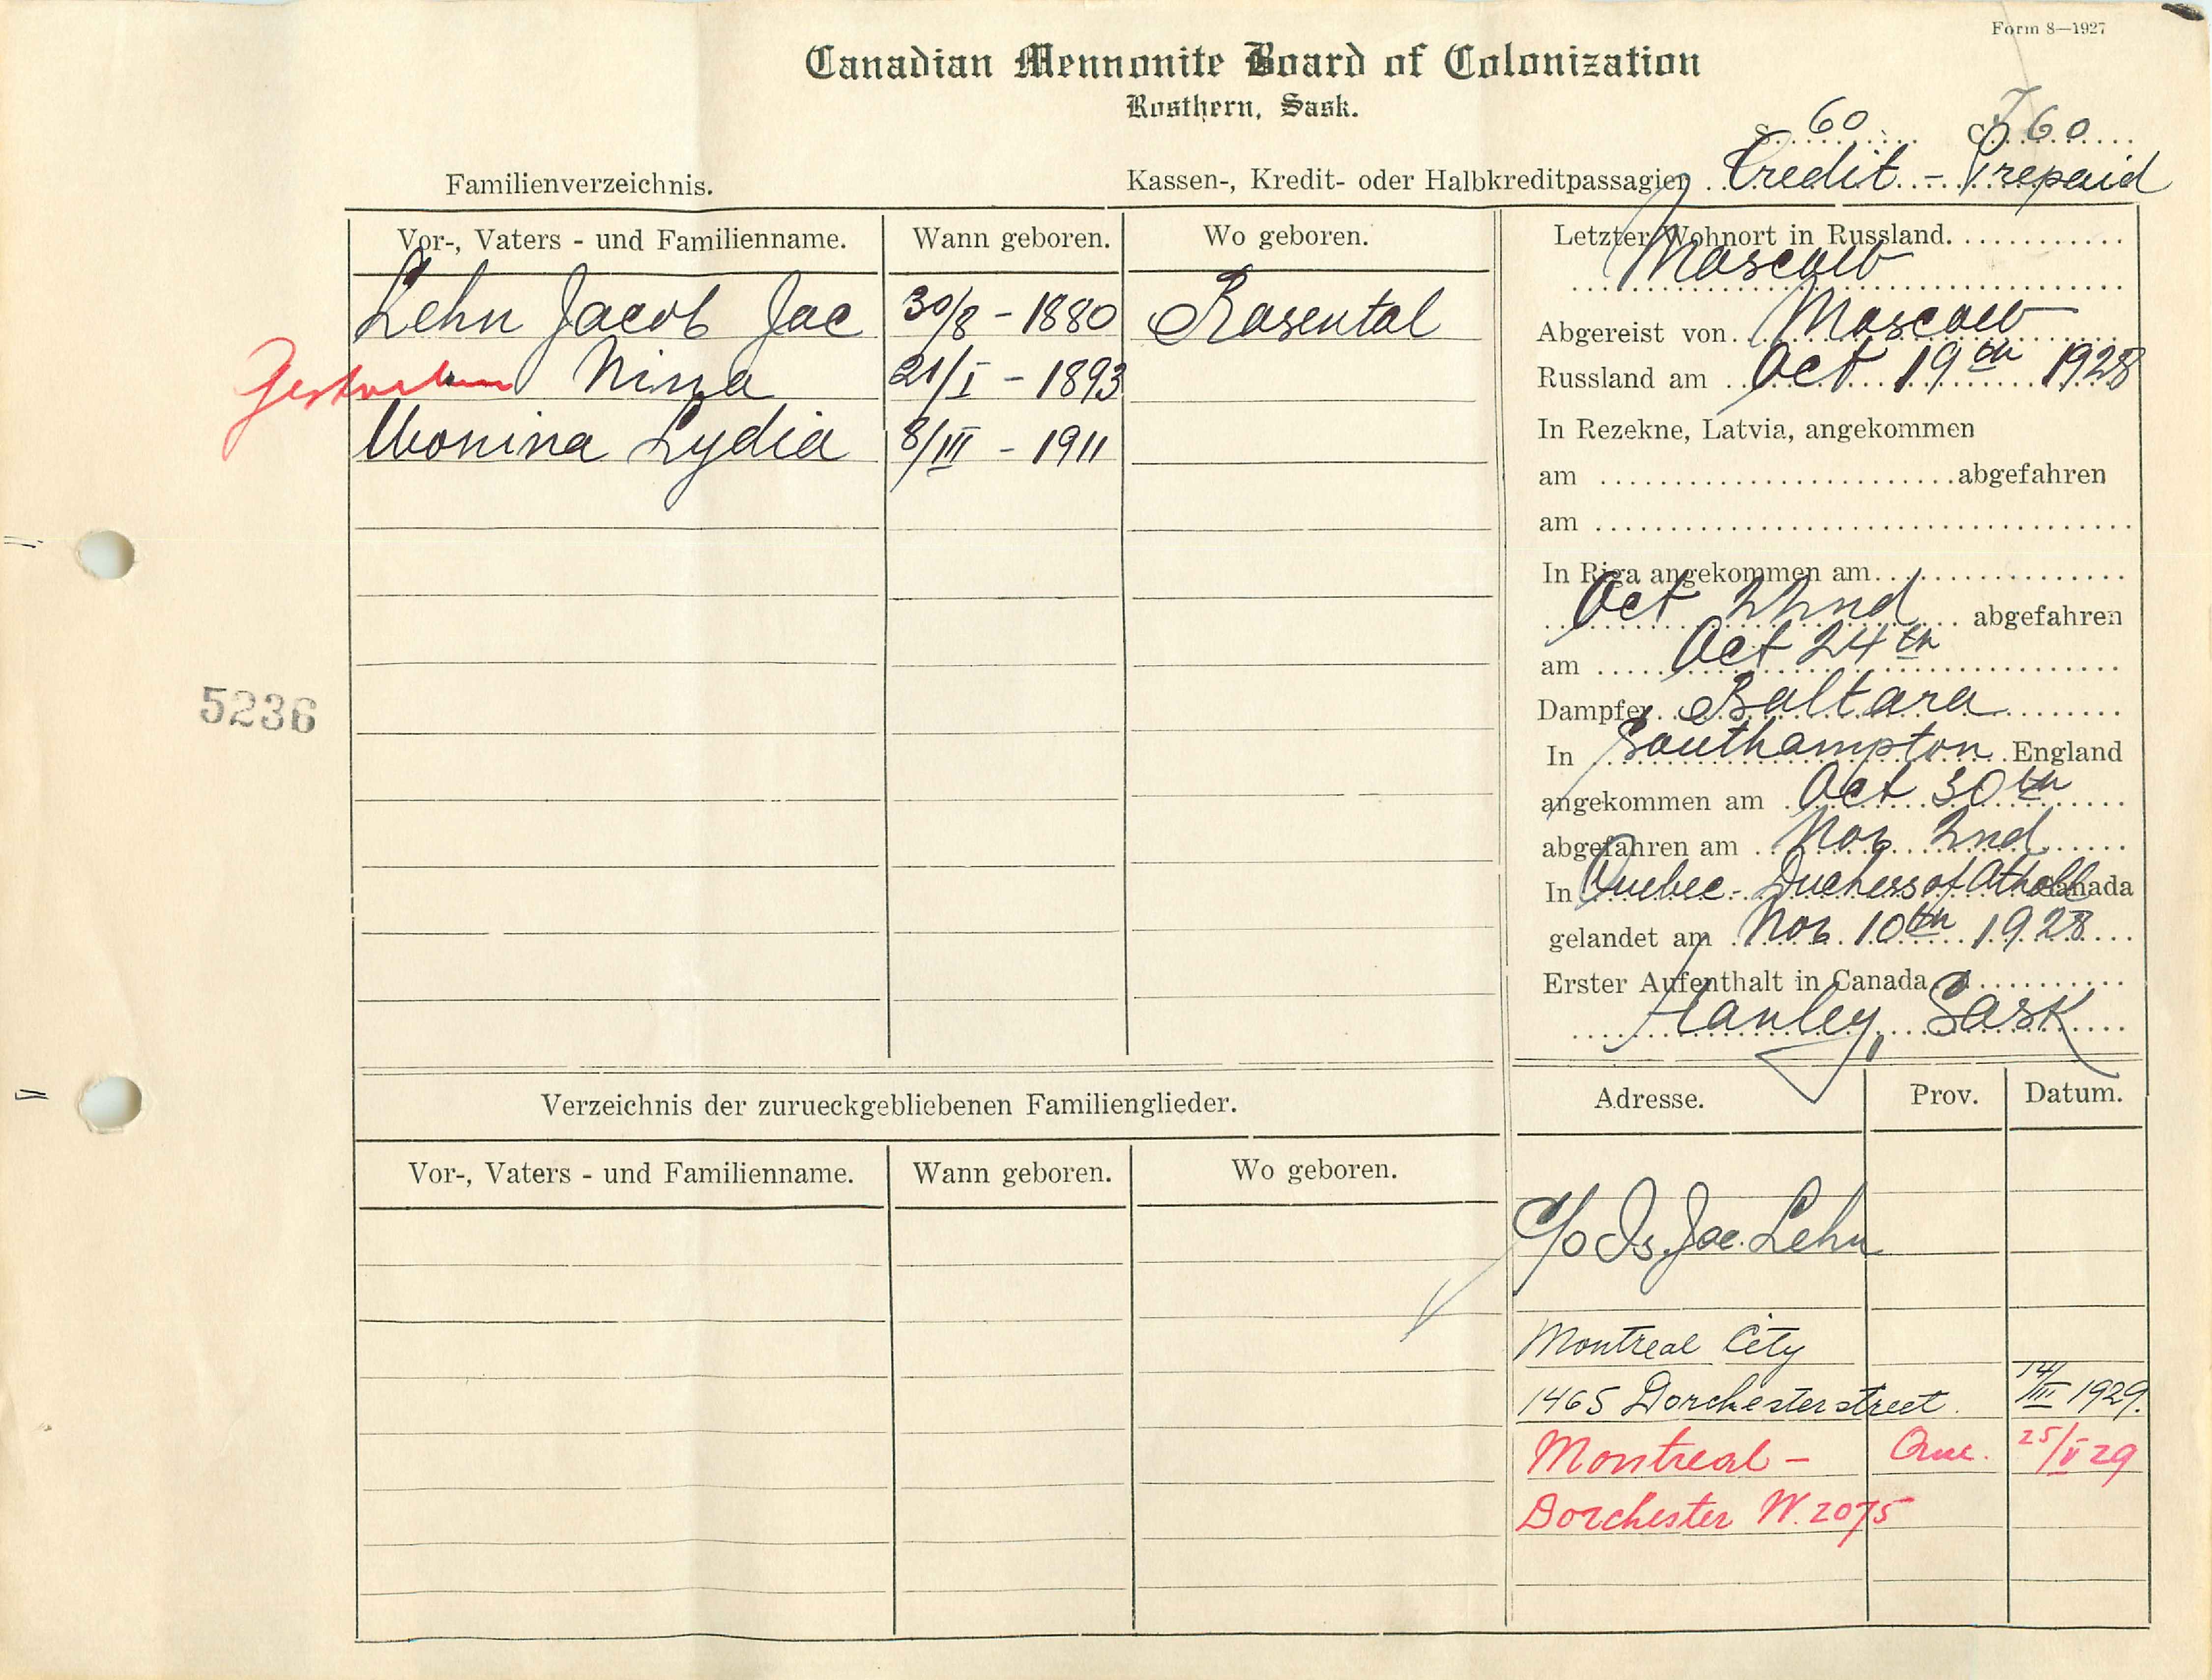 Form 8—1927
Canadian Mennonite Board of Colonization
Rosthern, Sask.
S. 60 C. 760
Familienverzeichnis.
Kassen-, Kredit- oder Halbkreditpassagier Credit - Prepaid
Vor-, Vaters - und Familienname. Wann geboren. Wo geboren.
Lehn Jacob Jac 30/8 - 1880 Rosental
Gestorben Nina 21/I - 1893
Lydia 8/III - 1911
Letzter Wohnort in Russland
Moscow
Abgereist von Moscow
Russland am Oct 19th 1928
In Rezekne, Latvia, angekommen
am abgefahren
am
In Riga angekommen am
Oct 22nd abgefahren
am Oct 24th
Dampfer Baltara
In Southampton England
angekommen am Oct 30th
abgefahren am Nov 2nd
In Quebec - Duchess of Atholl Canada
gelandet am Nov. 10th 1928
Erster Aufenthalt in Canada
Hanley, Sask
5236
Verzeichnis der zurueckgebliebenen Familienglieder.
Vor-, Vaters - und Familienname. Wann geboren. Wo geboren.
Adresse. Prov. Datum.
c/o Is. Jac. Lehn
Montreal City
1465 Dorchester street. 14/III 1929.
Montreal - Que. 25/V 29
Dorchester W. 2075